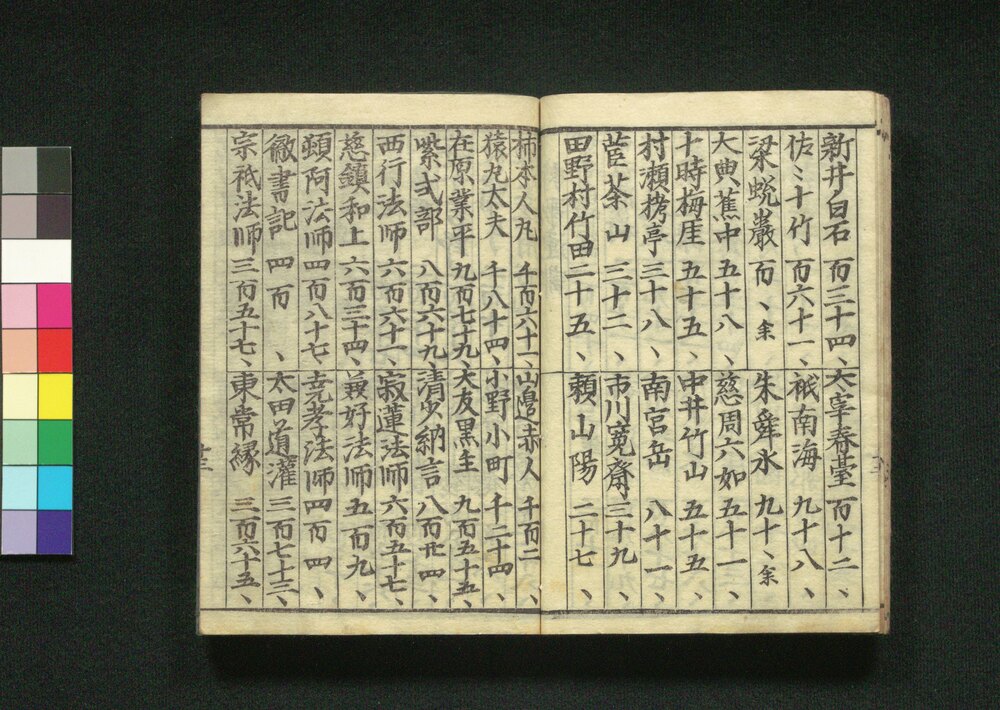 新井白石 百三十四、
佐〻十竹 百六十一、
梁蛻巌 百、余
大典蕉中 五十八、
十時梅厓 五十五、
村瀬栲亭 三十八、
菅茶山 三十二、
田野村竹田 二十五、
太宰春臺 百十二、
祇南海 九十八、
朱舜水 九十、余
慈周六如 五十一、
中井竹山 五十五、
南宮岳 八十一、
市川寛齋 三十九
頼山陽 二十七、
柿本人丸 千百六十一、
猿丸太夫 千八十四、
在原業平 九百七十九、
紫式部 八百六十九、
西行法師 六百六十一、
慈鎮和上 六百三十四、
頓阿法師 四百八十七、
徹書記 四百、
宗祇法師 三百五十七、
山邊赤人 千百二、
小野小町 千二十四、
大友黒主 九百五十五、
清少納言 八百廿四、
寂蓮法師 六百五十七、
兼好法師 五百九、
堯孝法師 四百四、
太田道灌 三百七十三、
東常縁 三百六十五、
十三